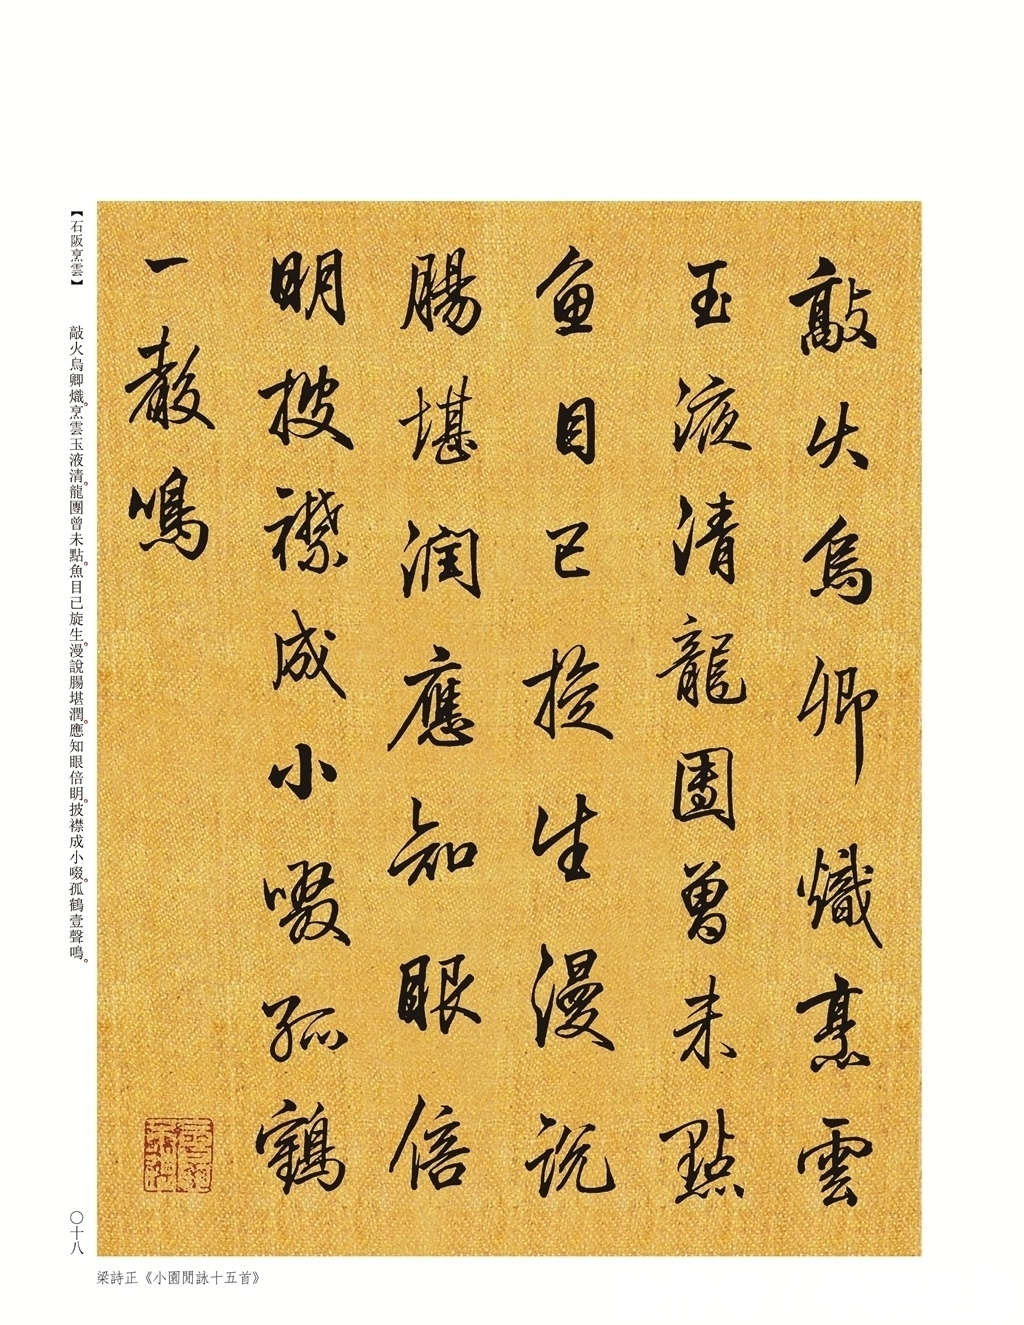 敲火烏卿熾烹雲
玉液清龍團曾未點
魚目已旋生漫説
腸堪潤應知眼倍
明披襟成小啜孤鶴
一聲鳴
【石阪烹雲】 敲火烏卿熾。烹雲玉液清。龍團曾未點。魚目已旋生。漫說腸堪潤。應知眼倍明。披襟成小啜。孤鶴壹聲鳴。
〇十八
梁詩正《小園閒詠十五首》